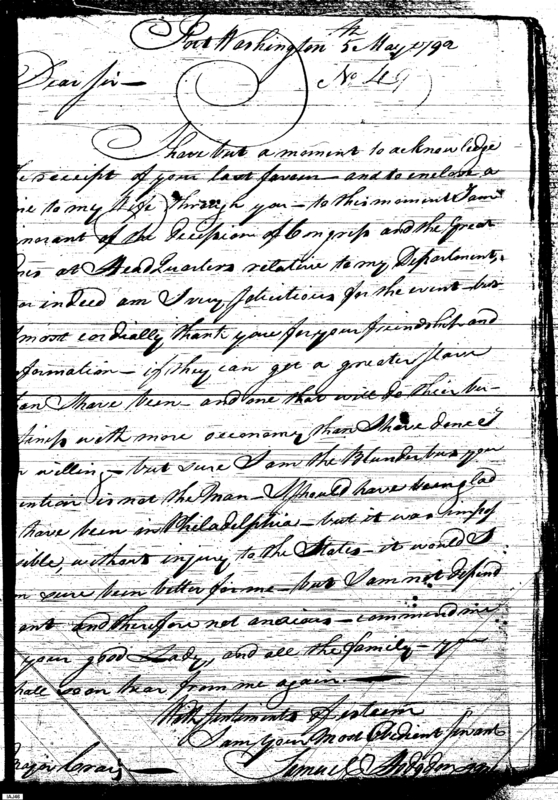 Fort Washington 5th May 1792
Dear Sir — No 49
I have but a moment to acknowledge
receipt of your last favour — and to enclose a
to my Wife through you — to this moment I am
norant of the decission of Congress and the Great
at Head Quarters relative to my Department,
indeed am I very solicitous for the event — but
most cordially thank you for your friendship and
formation — if they can get a greater slave
an I have been — and one that will do their bu-
siness with more oeconomy than I have done I
willing — but sure I am the Blunderbuss you
ention is not the Man — I should have been glad
have been in Philadelphia — but it was impos
sible, without injury to the States — it would I
sure been better for me — but I am not depend
ant and therefore not anxious — commend me
your good Lady, and all the family — you
hall soon hear from me again. —
With sentiments of esteem
I am your Most Obedient Servant
Samuel Hodgdon
Craig —